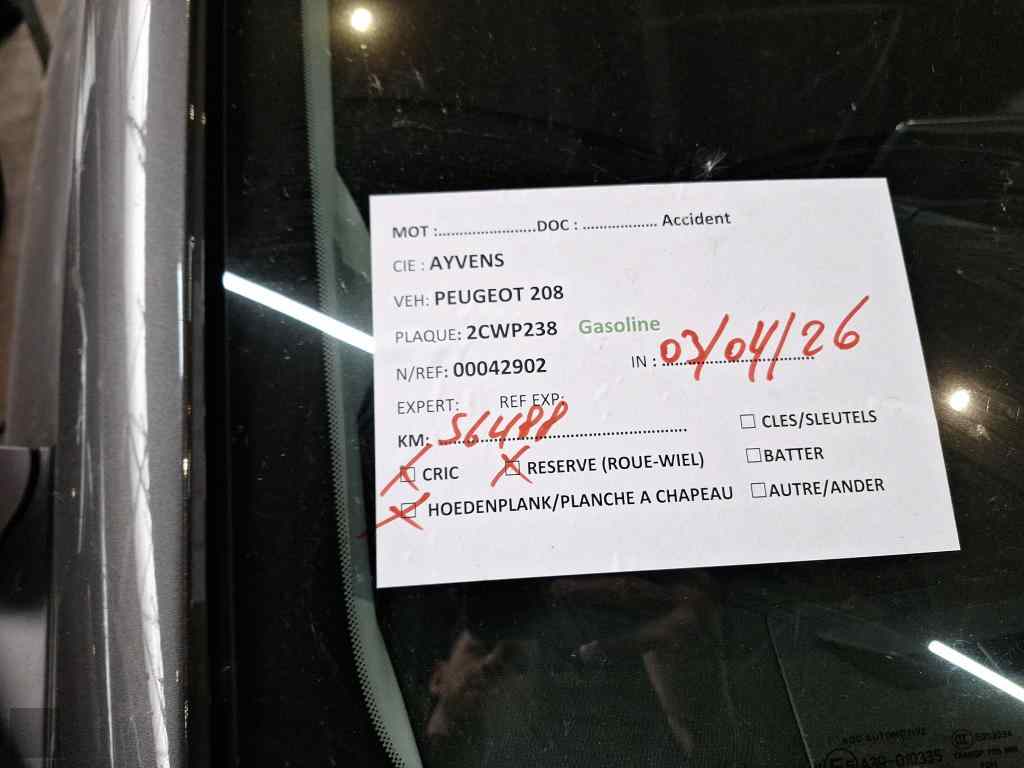 MOT :.......................DOC : .................. Accident
CIE : AYVENS
VEH: PEUGEOT 208
PLAQUE: 2CWP238 Gasoline
N/REF: 00042902 IN : 03/04/26
EXPERT: REF EXP:
KM: 56488
☐ CLES/SLEUTELS
☒ CRIC ☒ RESERVE (ROUE-WIEL) ☐BATTER
☒ HOEDENPLANK/PLANCHE A CHAPEAU ☐AUTRE/ANDER
AGC AUTOMOTIVE